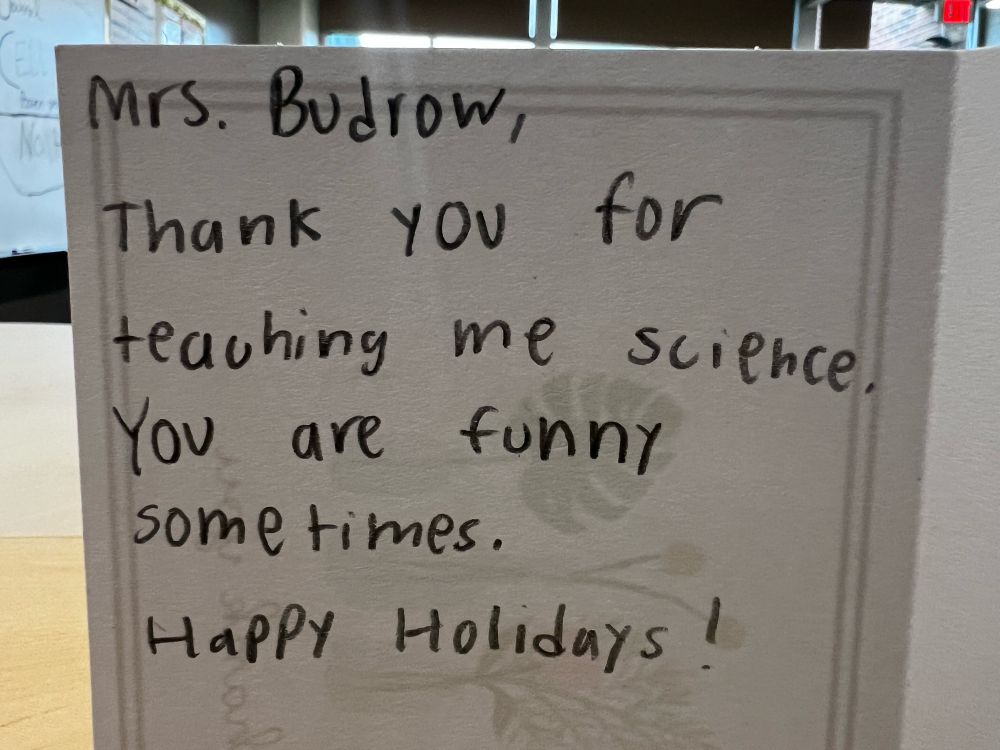 Mrs. Budrow,
Thank you for
teaching me science.
You are funny
sometimes.
Happy Holidays!